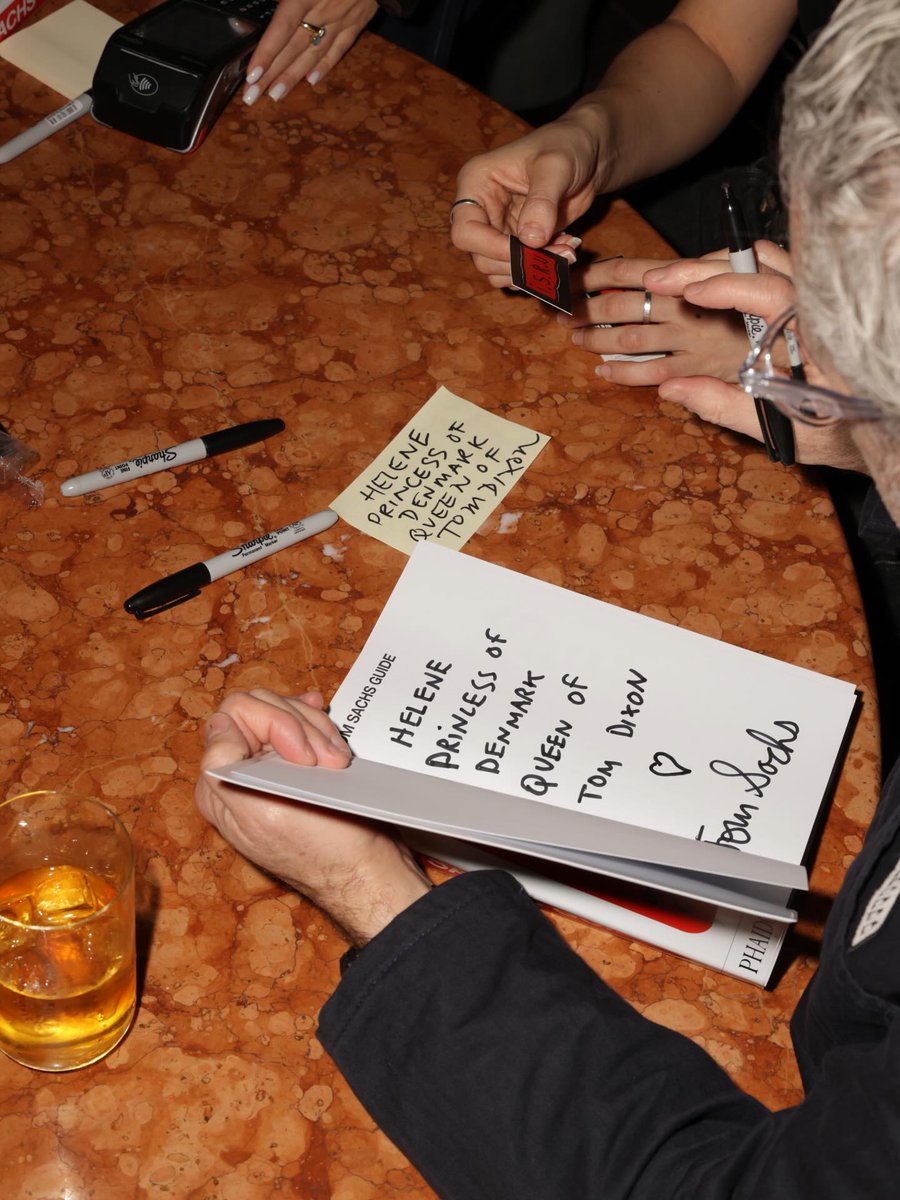 SACHS
I.S.R.U.
Sharpie
Sharpie
FINE
POINT
HELENE
PRINCESS OF
DENMARK
QUEEN OF
TOM DIXON
Sharpie
Permanent Marker
M SACHS GUIDE
HELENE
PRINCESS of
DENMARK
QUEEN of
TOM DIXON
♡
Tom Sachs
PHAID